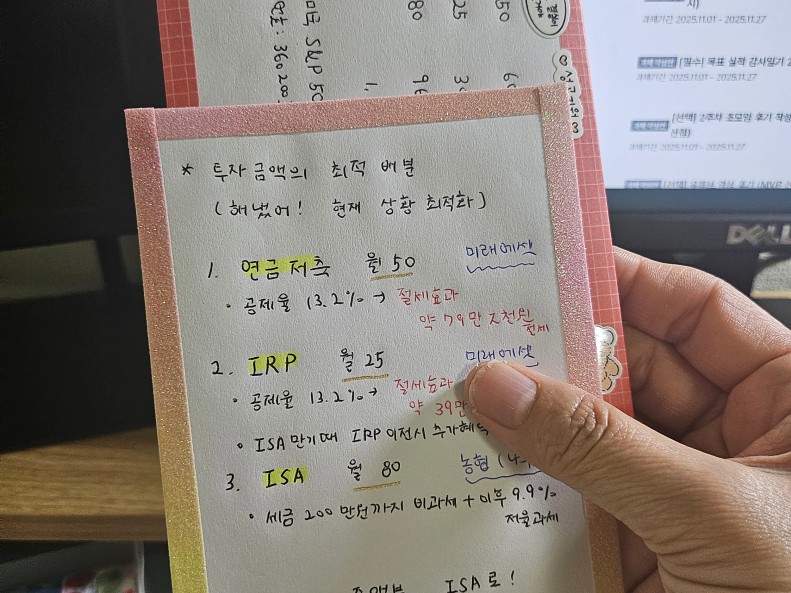 S&P 50
연순: 360200
80
25
50
1.
* 투자 금액의 최적 배분
(해냈어! 현재 상황 최적화)
1. 연금저축 월 50 미래에셋
• 공제율 13.2% → 절세효과
약 79만 2천원
2. IRP 월 25 미래에셋
• 공제율 13.2% → 절세효과
약 39만
• ISA 만기때 IRP 이전시 추가혜택
3. ISA 월 80 농협
• 세금 200만원까지 비과세 + 이후 9.9%
저율과세
ISA로!
과제기간 2025.11.01 - 2025.11.27
[필수] 목표 실적 감사일기 2
과제기간 2025.11.01 - 2025.11.27
[선택] 2주차 조모임 후기 작성
과제기간 2025.11.01 - 2025.11.27
DELL